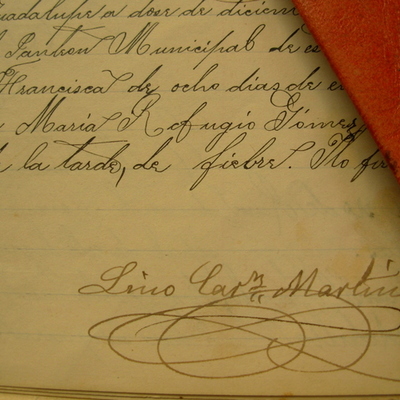 Guadalupe a dose de diciem
l Panteon Municipal de es
Francisca de ocho dias de e
María Refugio Gómez
la tarde, de fiebre. No fir
Lino Carm Martín